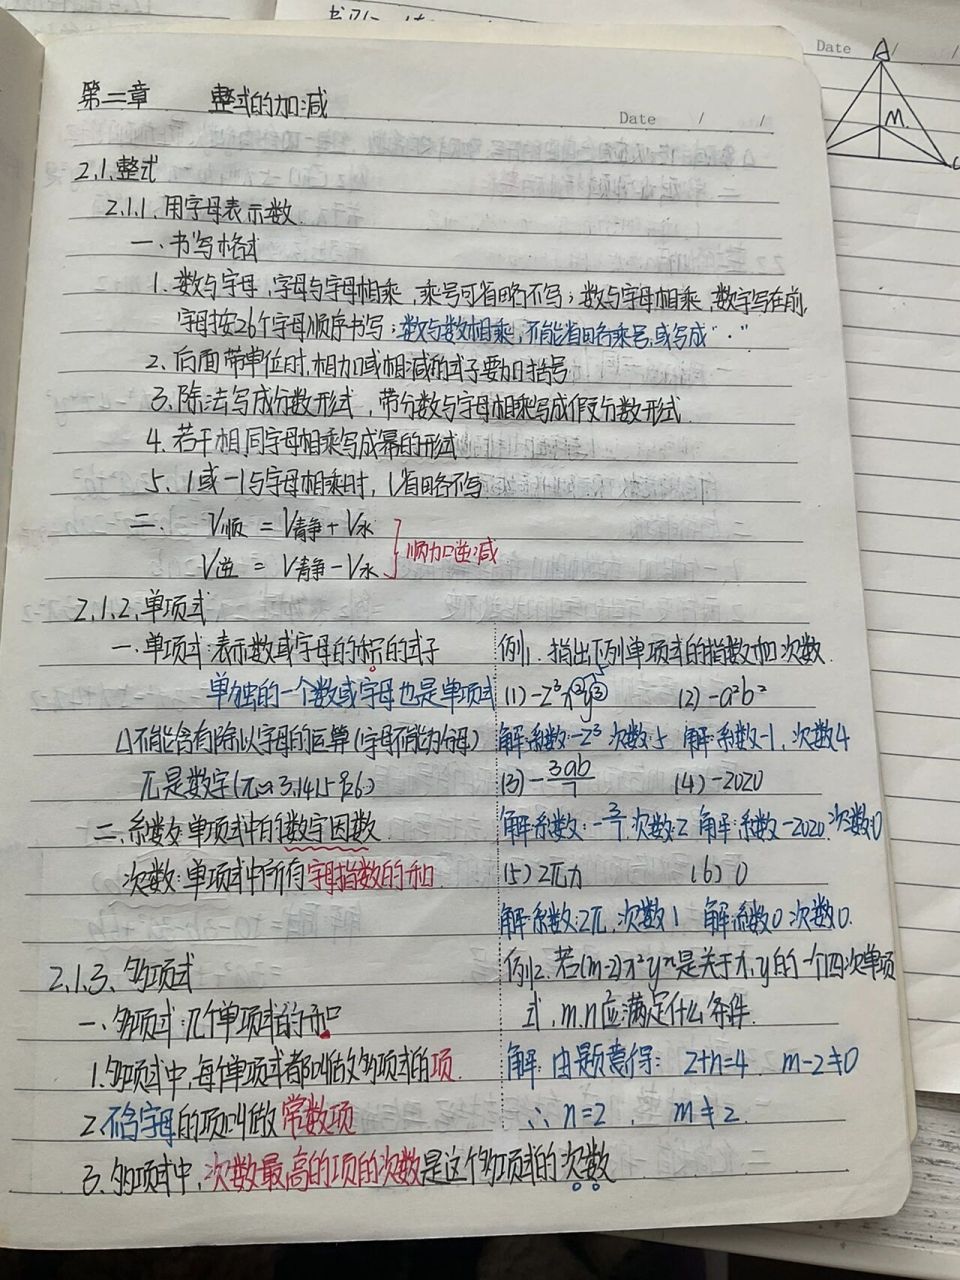 第二章 整式的加减
Date / /
2.1.整式
2.1.1.用字母表示数.
一.书写格式
1.数与字母,字母与字母相乘,乘号可省略不写;数与字母相乘,数字写在前,
字母按26个字母顺序书写;数与数相乘,不能省略乘号,或写成“·”
2.后面带单位时,相加或相减的式子要加括号
3.除法写成分数形式,带分数与字母相乘写成假分数形式.
4.若干相同字母相乘写成幂的形式
5.1或-1与字母相乘时,1省略不写
二. V顺 = V静 + V水
V逆 = V静 - V水
顺加逆减
2.1.2.单项式
一.单项式:表示数或字母的积的式子
单独的一个数或字母也是单项式
△不能含有除以字母的运算(字母不能为分母)
π是数字(π≈3.1415926)
二.系数:单项式中的数字因数.
次数:单项式中所有字母指数的和.
例1.指出下列单项式的指数和次数.
(1)-2³x²y³ (2)-a²b²
解:系数:-2³ 次数:5 解:系数-1,次数4
(3)-3ab/7 (4)-2020
解:系数:-3/7,次数:2 解:系数-2020.次数:0
(5)2πx (6)0
解:系数:2π,次数1 解:系数0 次数0.
例2.若(m-2)x²yⁿ是关于x,y的一个四次单项
式,m,n应满足什么条件.
解:由题意得: 2+n=4, m-2≠0
∴n=2, m≠2.
2.1.3.多项式
一.多项式:几个单项式的和
1.多项式中,每个单项式都叫做多项式的项.
2.不含字母的项叫做常数项
3.多项式中,次数最高的项的次数是这个多项式的次数
Date / /
A
M
C